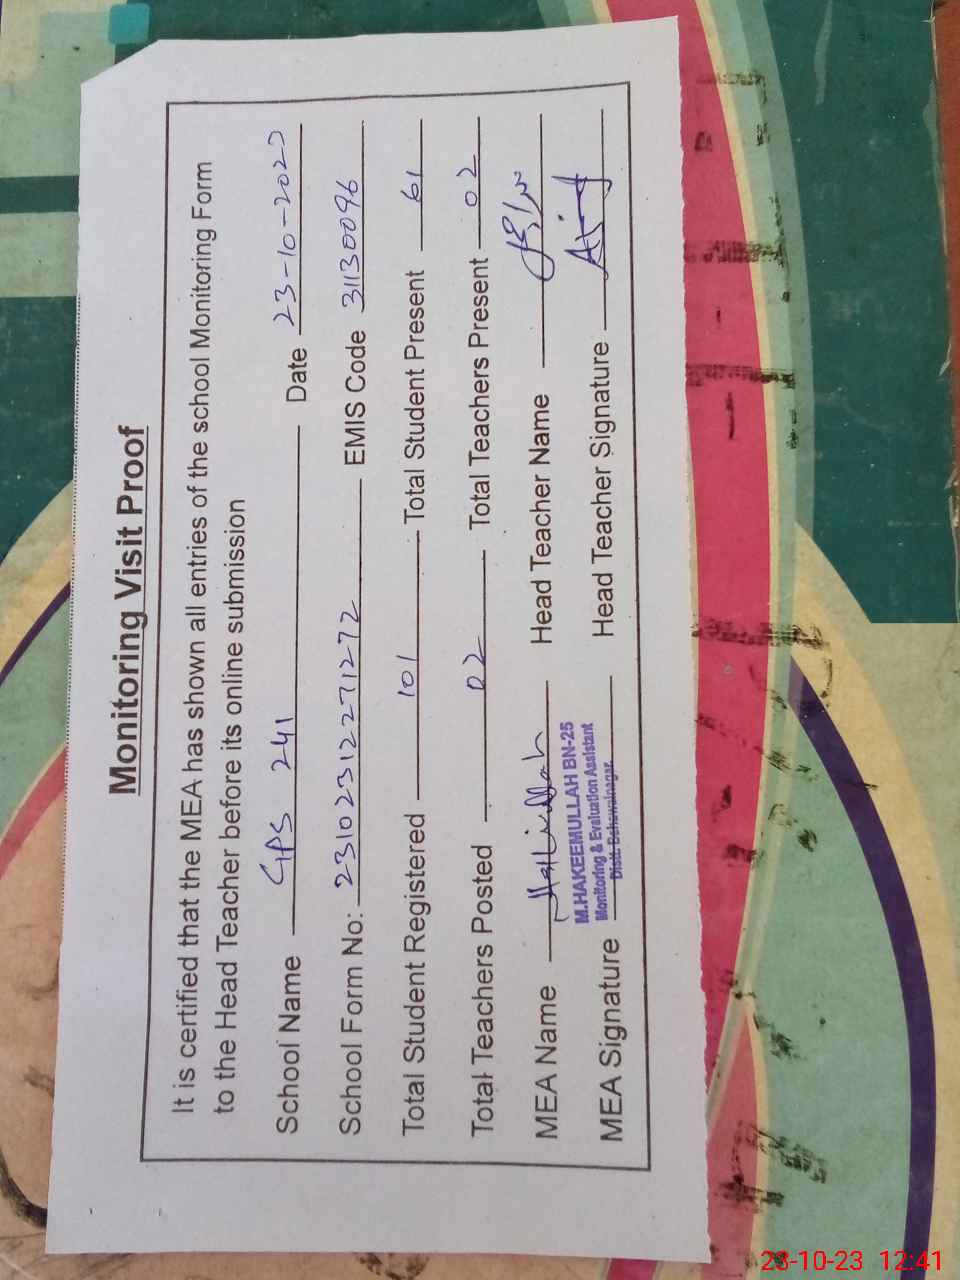 Monitoring Visit Proof
It is certified that the MEA has shown all entries of the school Monitoring Form
to the Head Teacher before its online submission
School Name GPS 241 Date 23-10-2023
School Form No: 231023122271272 EMIS Code 31130096
Total Student Registered 101 Total Student Present 61
Total Teachers Posted 02 Total Teachers Present 02
MEA Name Head Teacher Name
M.HAKEEMULLAH BN-25
Monitoring & Evaluation Assistant
Distt. Bahawalnagar
MEA Signature Head Teacher Signature
23-10-23 12:41